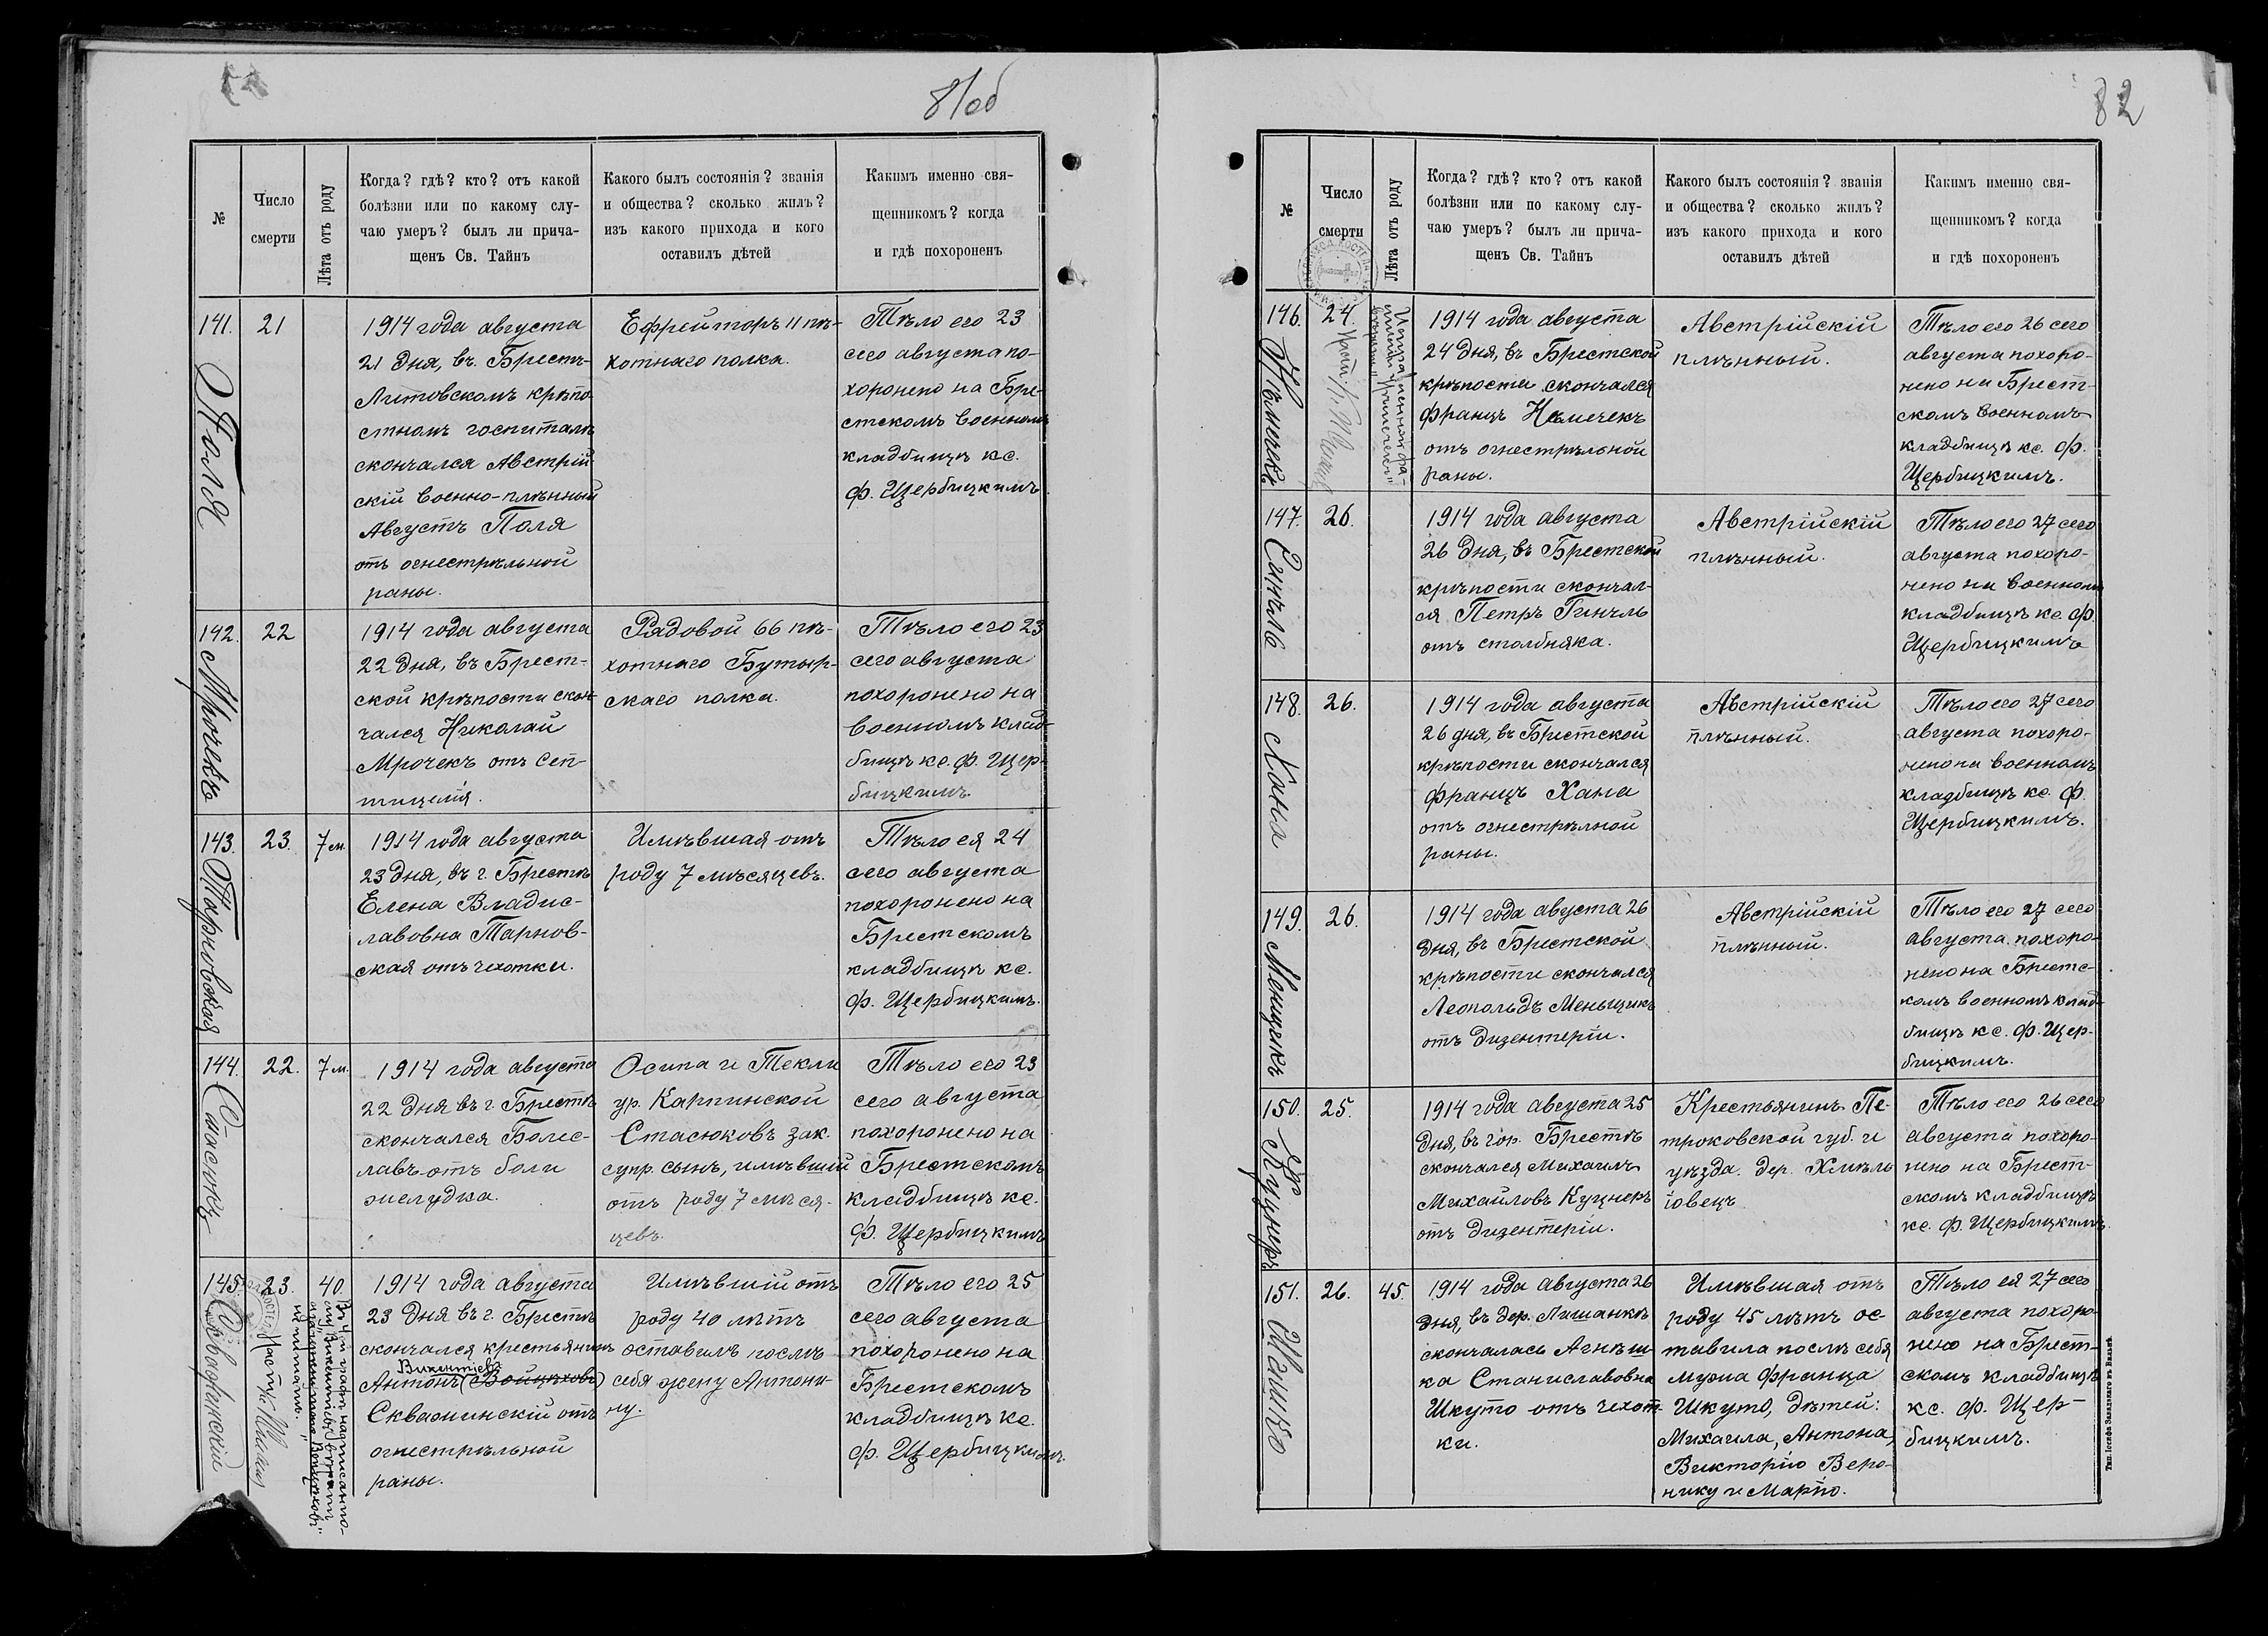 81об
№
Число
смерти
Лѣта отъ роду
Когда? гдѣ? кто? отъ какой
болѣзни или по какому слу-
чаю умеръ? былъ ли прича-
щенъ Св. Таинъ
Какого былъ состоянія? званія
и общества? сколько жилъ?
изъ какого прихода и кого
оставилъ дѣтей
Какимъ именно свя-
щенникомъ? когда
и гдѣ похороненъ
141.
Поля
21
1914 года августа
21 дня, въ Брестъ-
Литовскомъ крѣпо-
стномъ госпиталѣ
скончался Австрій-
скій военно-плѣнный
Августъ Поля
отъ огнестрѣльной
раны.
Ефрейторъ 11 пѣ-
хотнаго полка.
Тѣло его 23
сего августа по-
хоронено на Бре-
стскомъ военномъ
кладбищѣ кс.
ф. Щербицкимъ.
142.
Мрочекъ
22
1914 года августа
22 дня, въ Брест-
ской крѣпости скон-
чался Николай
Мрочекъ отъ сеп-
тицемія.
Рядовой 66 пѣ-
хотнаго Бутыр-
скаго полка.
Тѣло его 23
сего августа
похоронено на
военномъ клад-
бищѣ кс. ф. Щер-
бицкимъ.
143.
Тарновская
23.
7 м.
1914 года августа
23 дня, въ г. Брестѣ
Елена Владис-
лавовна Тарнов-
ская отъ чахотки.
Имѣвшая отъ
роду 7 мѣсяцевъ.
Тѣло ея 24
сего августа
похоронено на
Брестскомъ
кладбищѣ кс.
ф. Щербицкимъ.
144.
Стасюкъ
22.
7 м.
1914 года августа
22 дня въ г. Брестѣ
скончался Болес-
лавъ отъ боли
желудка.
Осипа и Текли
ур. Карпинской
Стасюковъ зак.
супр. сынъ, имѣвшій
отъ роду 7 мѣся-
цевъ.
Тѣло его 23
сего августа
похоронено на
Брестскомъ
кладбищѣ кс.
ф. Щербицкимъ
145.
23.
40.
Въ 4-й графѣ написанно-
му "Викентіевъ" вѣрить
1914 года августа
23 дня въ г. Брестѣ
скончался крестьянинъ
Викентіевъ
Антонъ (Войцѣховъ)
отъ
огнестрѣльной
раны.
Имѣвшій отъ
роду 40 лѣтъ
оставилъ послѣ
себя жену Антони-
ну.
Тѣло его 25
сего августа
похоронено на
Брестскомъ
кладбищѣ кс.
ф. Щербицкимъ.
82
№
Число
смерти
Лѣта отъ роду
Когда? гдѣ? кто? отъ какой
болѣзни или по какому слу-
чаю умеръ? былъ ли прича-
щенъ Св. Таинъ
Какого былъ состоянія? званія
и общества? сколько жилъ?
изъ какого прихода и кого
оставилъ дѣтей
Какимъ именно свя-
щенникомъ? когда
и гдѣ похороненъ
146.
Нѣмечекъ
24.
1914 года августа
24 дня, въ Брестской
крѣпости скончался
Францъ Нѣмечекъ
отъ огнестрѣльной
раны.
Австрійскій
плѣнный.
Тѣло его 26 сего
августа похоро-
нено на Брест-
скомъ военномъ
кладбищѣ кс. ф.
Щербицкимъ.
147.
26.
1914 года августа
26 дня, въ Брестской
крѣпости скончал-
ся Петръ
отъ столбняка.
Австрійскій
плѣнный.
Тѣло его 27 сего
августа похоро-
нено на военномъ
кладбищѣ кс. ф.
Щербицкимъ
148.
Хана
26.
1914 года августа
26 дня, въ Брестской
крѣпости скончался
Францъ Хана
отъ огнестрѣльной
раны.
Австрійскій
плѣнный.
Тѣло его 27 сего
августа похоро-
нено на военномъ
кладбищѣ кс. ф.
Щербицкимъ.
149.
Менщикъ
26.
1914 года августа 26
дня, въ Брестской
крѣпости скончался
Леопольдъ Меньщикъ
отъ дизентеріи.
Австрійскій
плѣнный.
Тѣло его 27 сего
августа похоро-
нено на Брестс-
комъ военномъ клад-
бищѣ кс. ф. Щер-
бицкимъ.
150.
Куцнеръ
25.
1914 года августа 25
дня, въ гор. Брестѣ
скончался Михаилъ
Михайловъ Куцнеръ
отъ дизентеріи.
Крестьянинъ Пе-
троковской губ. и
уѣзда. дер. Хмѣль
іовецъ
Тѣло его 26 сего
августа похоро-
нено на Брест-
скомъ кладбищѣ
кс. ф. Щербицкимъ.
151.
Шкуто
26.
45.
1914 года августа 26
дня, въ дер. Лишанкѣ
скончалась Агнѣш-
ка Станиславовна
Шкуто отъ чахот-
ки.
Имѣвшая отъ
роду 45 лѣтъ ос-
тавила послѣ себя
мужа Франца
Шкуто, дѣтей:
Михаила, Антона,
Викторію Веро-
нику и Марію.
Тѣло ея 27 сего
августа похоро-
нено на Брест-
скомъ кладбищѣ
кс. ф. Щер-
бицкимъ.
Тип. Іосифа Завадзкаго въ Вильнѣ.